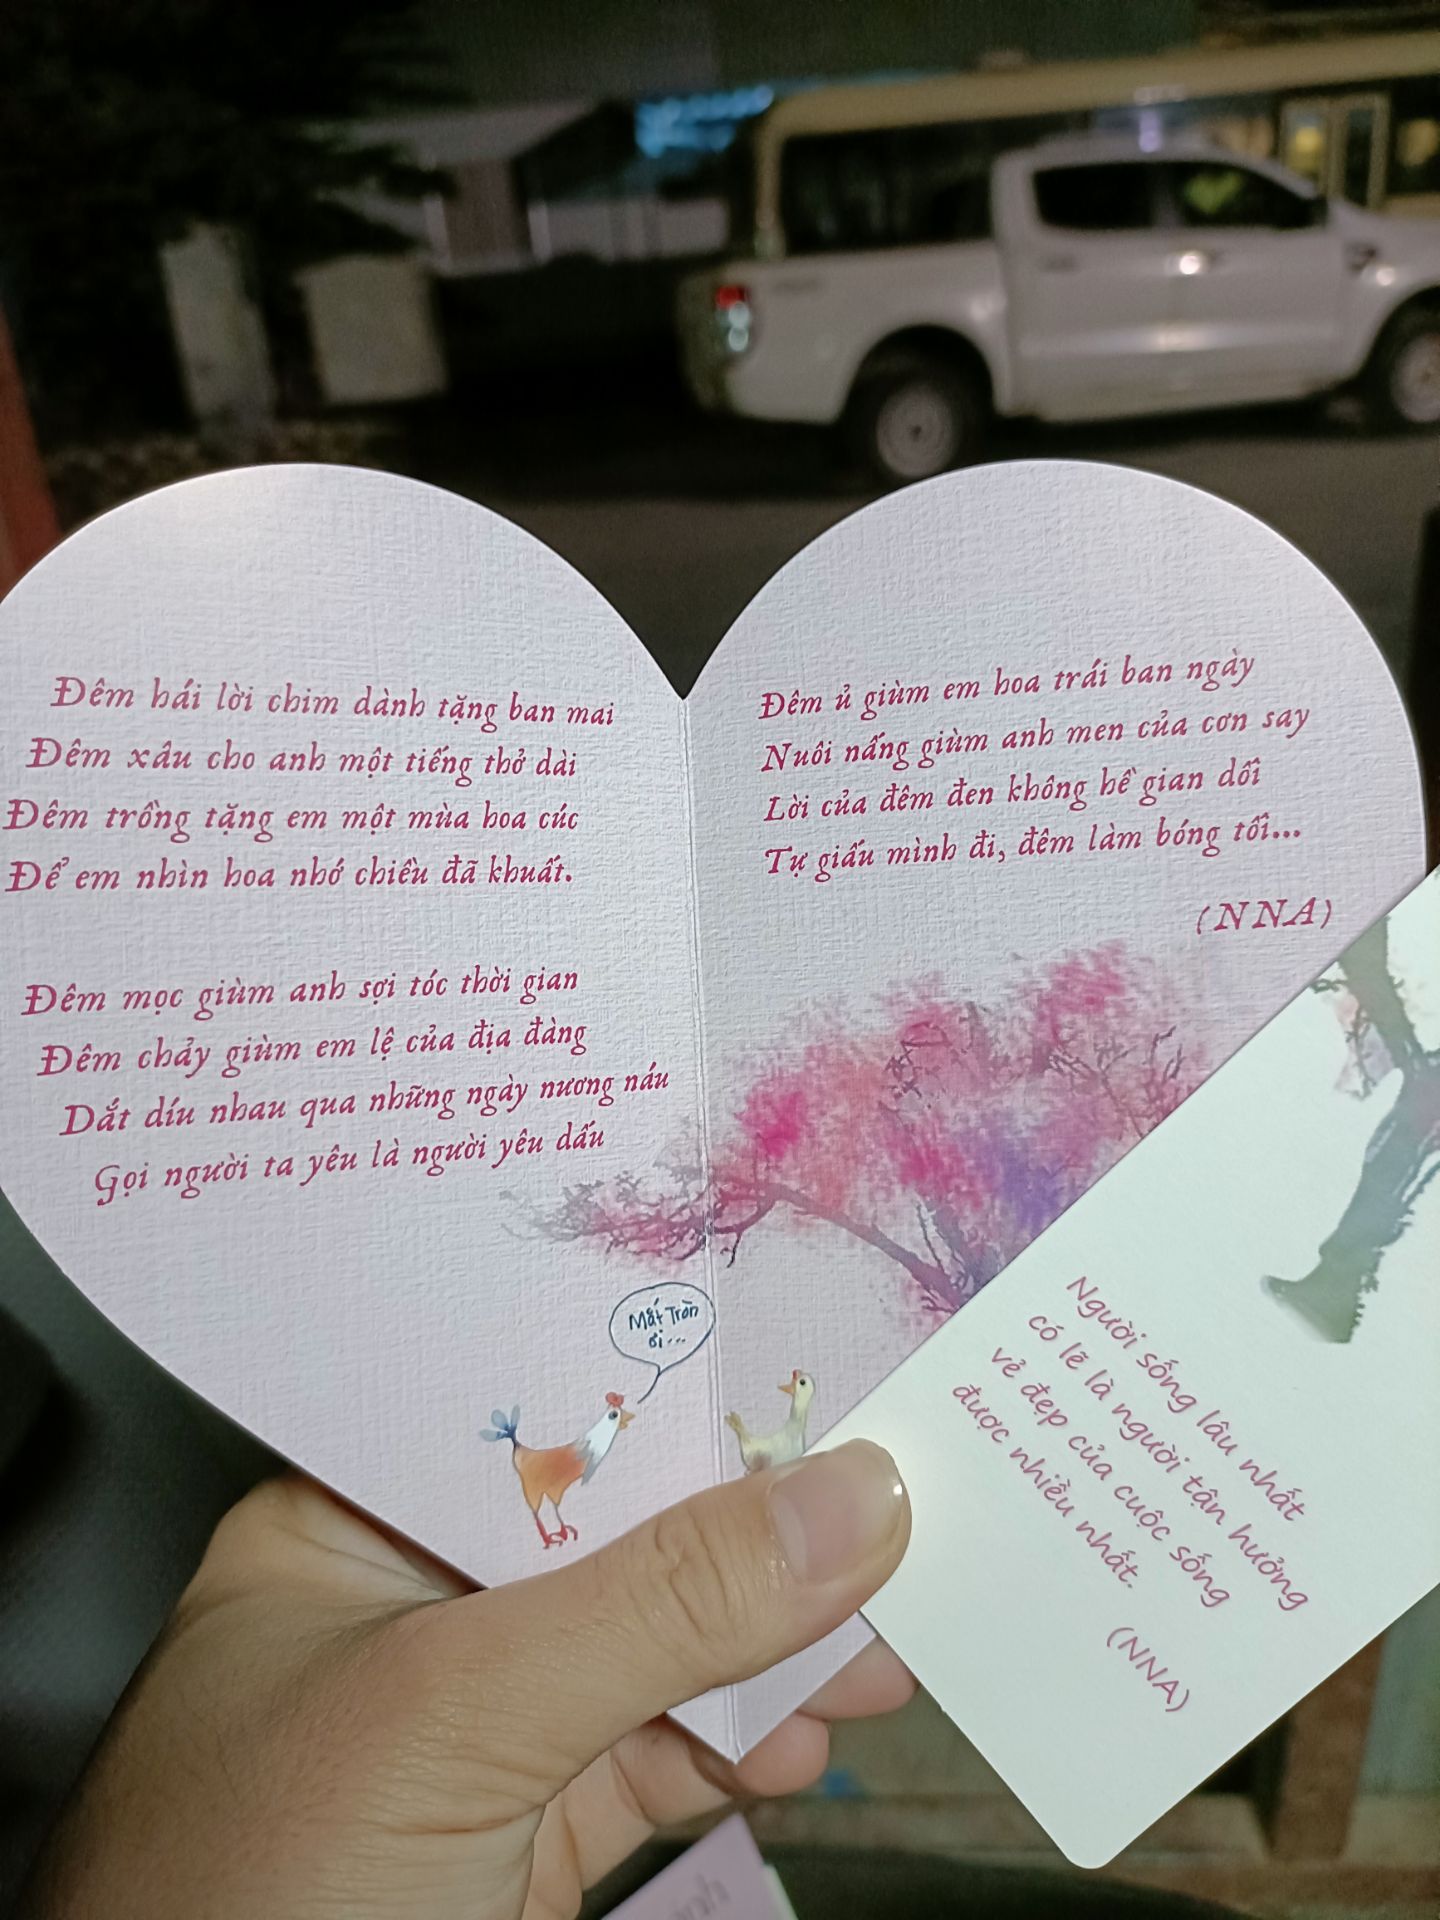 Đêm hái lời chim dành tặng ban mai
Đêm xâu cho anh một tiếng thở dài
Đêm trồng tặng em một mùa hoa cúc
Để em nhìn hoa nhớ chiều đã khuất.
Đêm mọc giùm anh sợi tóc thời gian
Đêm chảy giùm em lệ của địa đàng
Dắt díu nhau qua những ngày nương náu
Gọi người ta yêu là người yêu dấu
Mắt Tròn
ơi...
Đêm ủ giùm em hoa trái ban ngày
Nuôi nấng giùm anh men của cơn say
Lời của đêm đen không hề gian dối
Tự giấu mình đi, đêm làm bóng tối...
(NNA)
Người sống lâu nhất
có lẽ là người tận hưởng
vẻ đẹp của cuộc sống
được nhiều nhất.
(NNA)